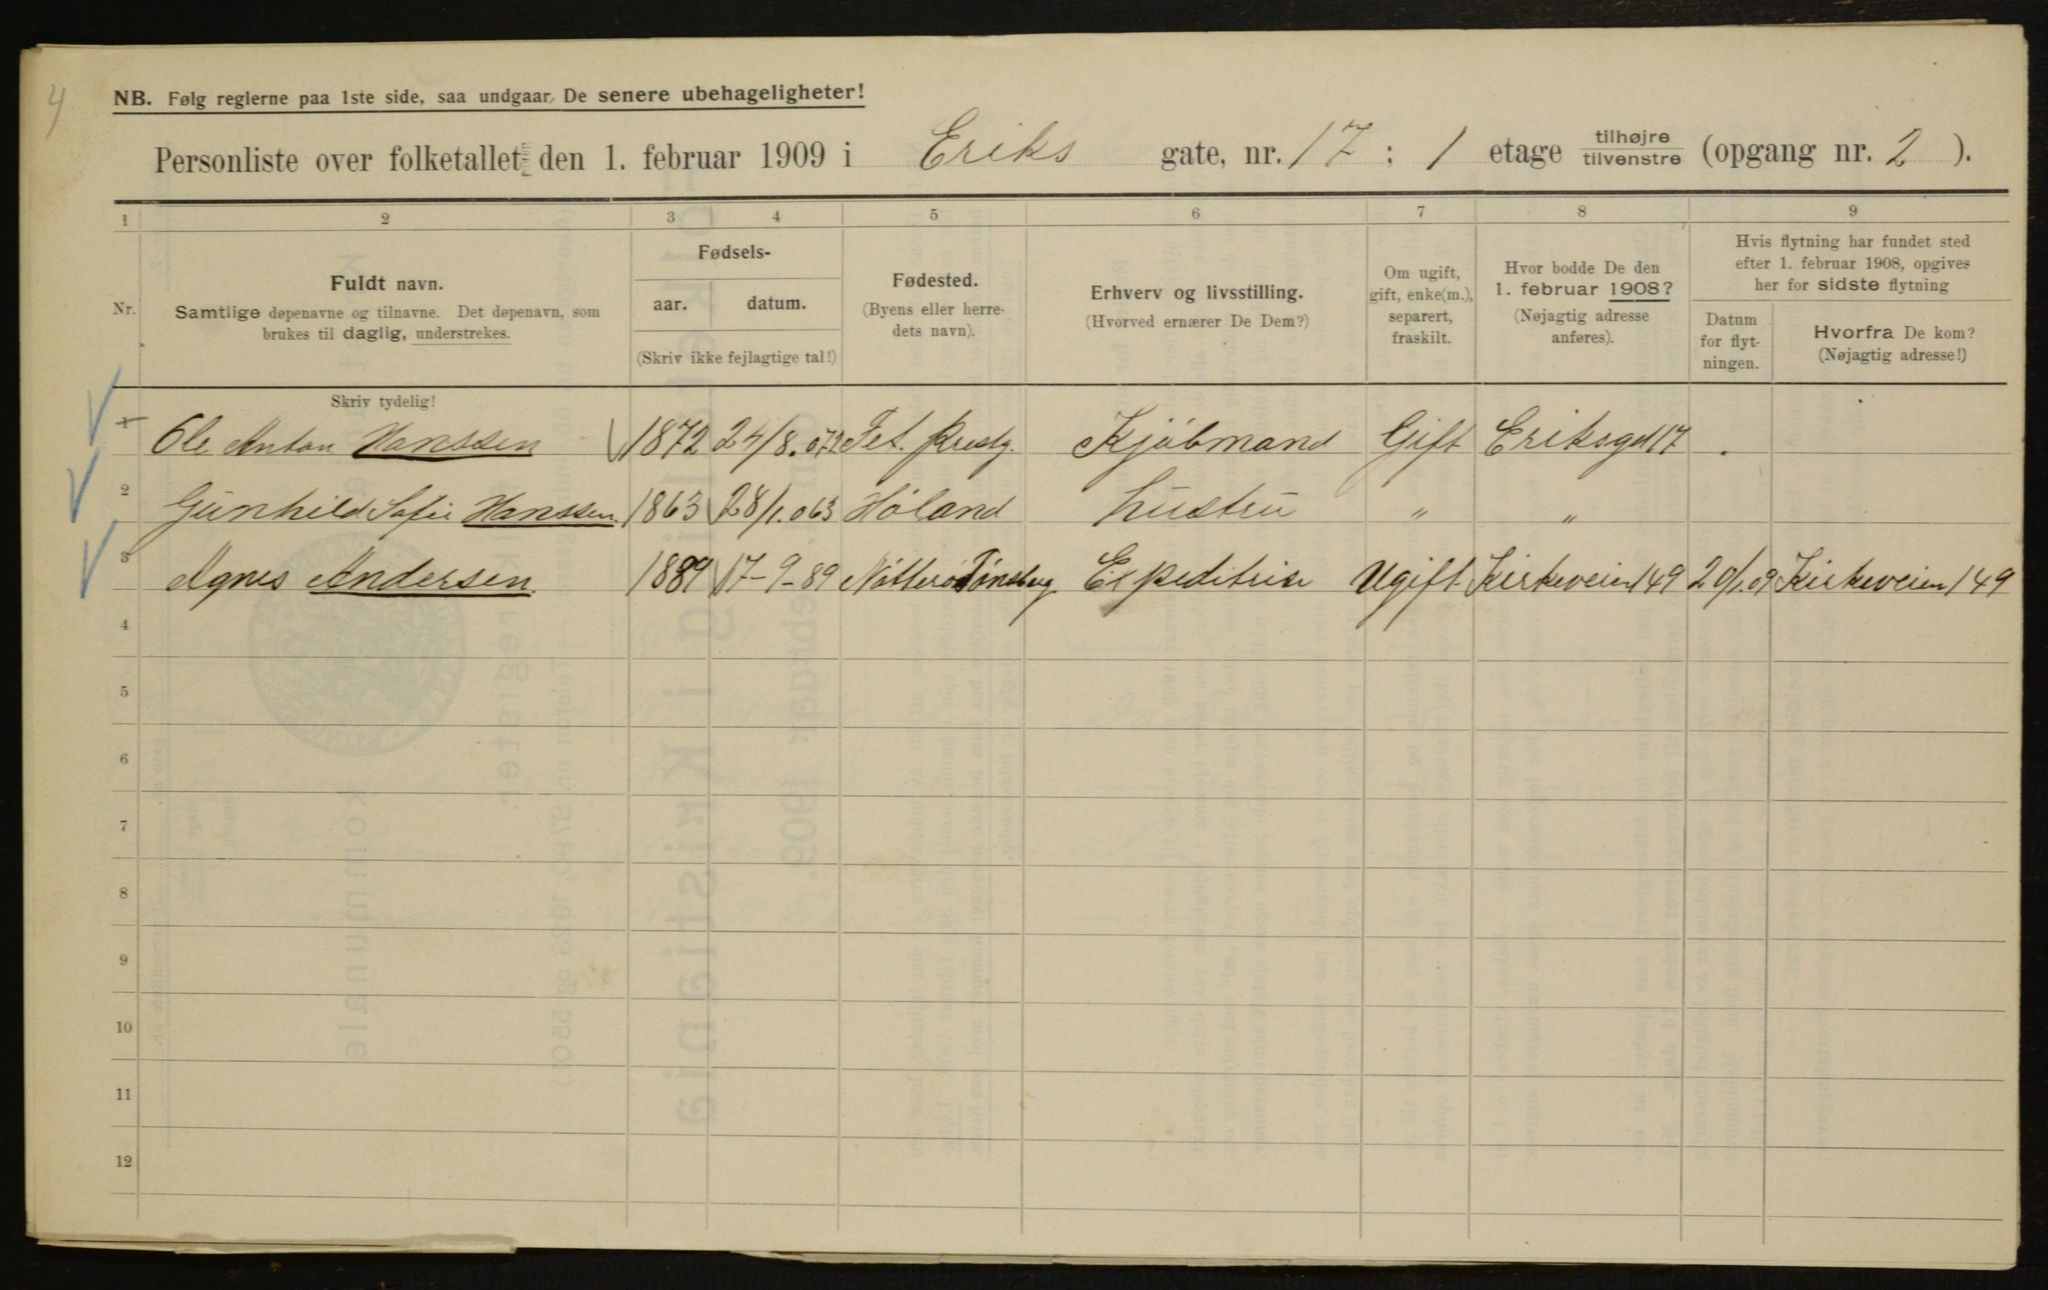 4
NB. Følg reglerne paa 1ste side, saa undgaar De senere ubehageligheter!
Personliste over folketallet den 1. februar 1909 i Eriks gate, nr. 17 ; 1 etage tilhøjre/tilvenstre (opgang nr. 2 ).
1 2 3 4 5 6 7 8 9
Nr.
Fuldt navn.
Samtlige døpenavne og tilnavne. Det døpenavn, som
brukes til daglig, understrekes.
Fødsels-
aar. datum.
(Skriv ikke fejlagtige tal!)
Fødested.
(Byens eller herre-
dets navn).
Erhverv og livsstilling.
(Hvorved ernærer De Dem?)
Om ugift,
gift, enke(m.),
separert,
fraskilt.
Hvor bodde De den
1. februar 1908?
(Nøjagtig adresse
anføres).
Hvis flytning har fundet sted
efter 1. februar 1908, opgives
her for sidste flytning
Datum
for flyt-
ningen.
Hvorfra De kom?
(Nøjagtig adresse!)
Skriv tydelig!
1 Ole Anton Hanssen 1872 24/8.072 Fet. Kjøbmand Gift Eriksgd 17
2 Gunhild Sofie Hanssen. 1863 28/1.063 Høland hustru " "
3 Agnes Andersen. 1889 17-9-89 Nøtterø Tønsberg Expeditrise Ugift Kirkeveien 149 20/1.09 Kirkeveien 149
4
5
6
7
8
9
10
11
12